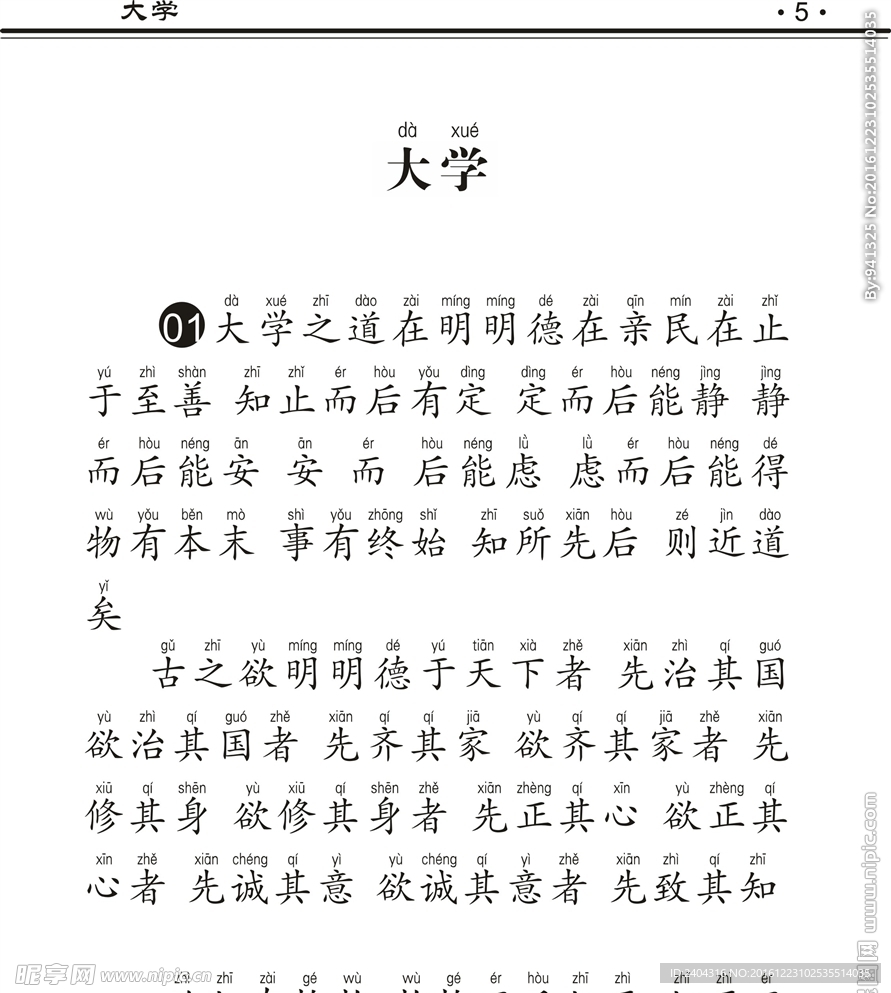 大学 ·5·
dà xué
大学
dà xué zhī dào zài míng míng dé zài qīn mín zài zhǐ
01 大学之道在明明德在亲民在止
yú zhì shàn zhī zhǐ ér hòu yǒu dìng dìng ér hòu néng jìng jìng
于至善 知止而后有定 定而后能静 静
ér hòu néng ān ān ér hòu néng lǜ lǜ ér hòu néng dé
而后能安 安 而 后能虑 虑而后能得
wù yǒu běn mò shì yǒu zhōng shǐ zhī suǒ xiān hòu zé jìn dào
物有本末 事有终始 知所先后 则近道
yǐ
矣
gǔ zhī yù míng míng dé yú tiān xià zhě xiān zhì qí guó
古之欲明明德于天下者 先治其国
yù zhì qí guó zhě xiān qí qí jiā yù qí qí jiā zhě xiān
欲治其国者 先齐其家 欲齐其家者 先
xiū qí shēn yù xiū qí shēn zhě xiān zhèng qí xīn yù zhèng qí
修其身 欲修其身者 先正其心 欲正其
xīn zhě xiān chéng qí yì yù chéng qí yì zhě xiān zhì qí zhī
心者 先诚其意 欲诚其意者 先致其知
zhī zài gé wù wù gé ér hòu zhī zhì zhī zhì ér
By:941325 No:20161223102535514035
昵享网 www.nipic.cn
ID:2404316 NO:20161223102535514035
www.nipic.com